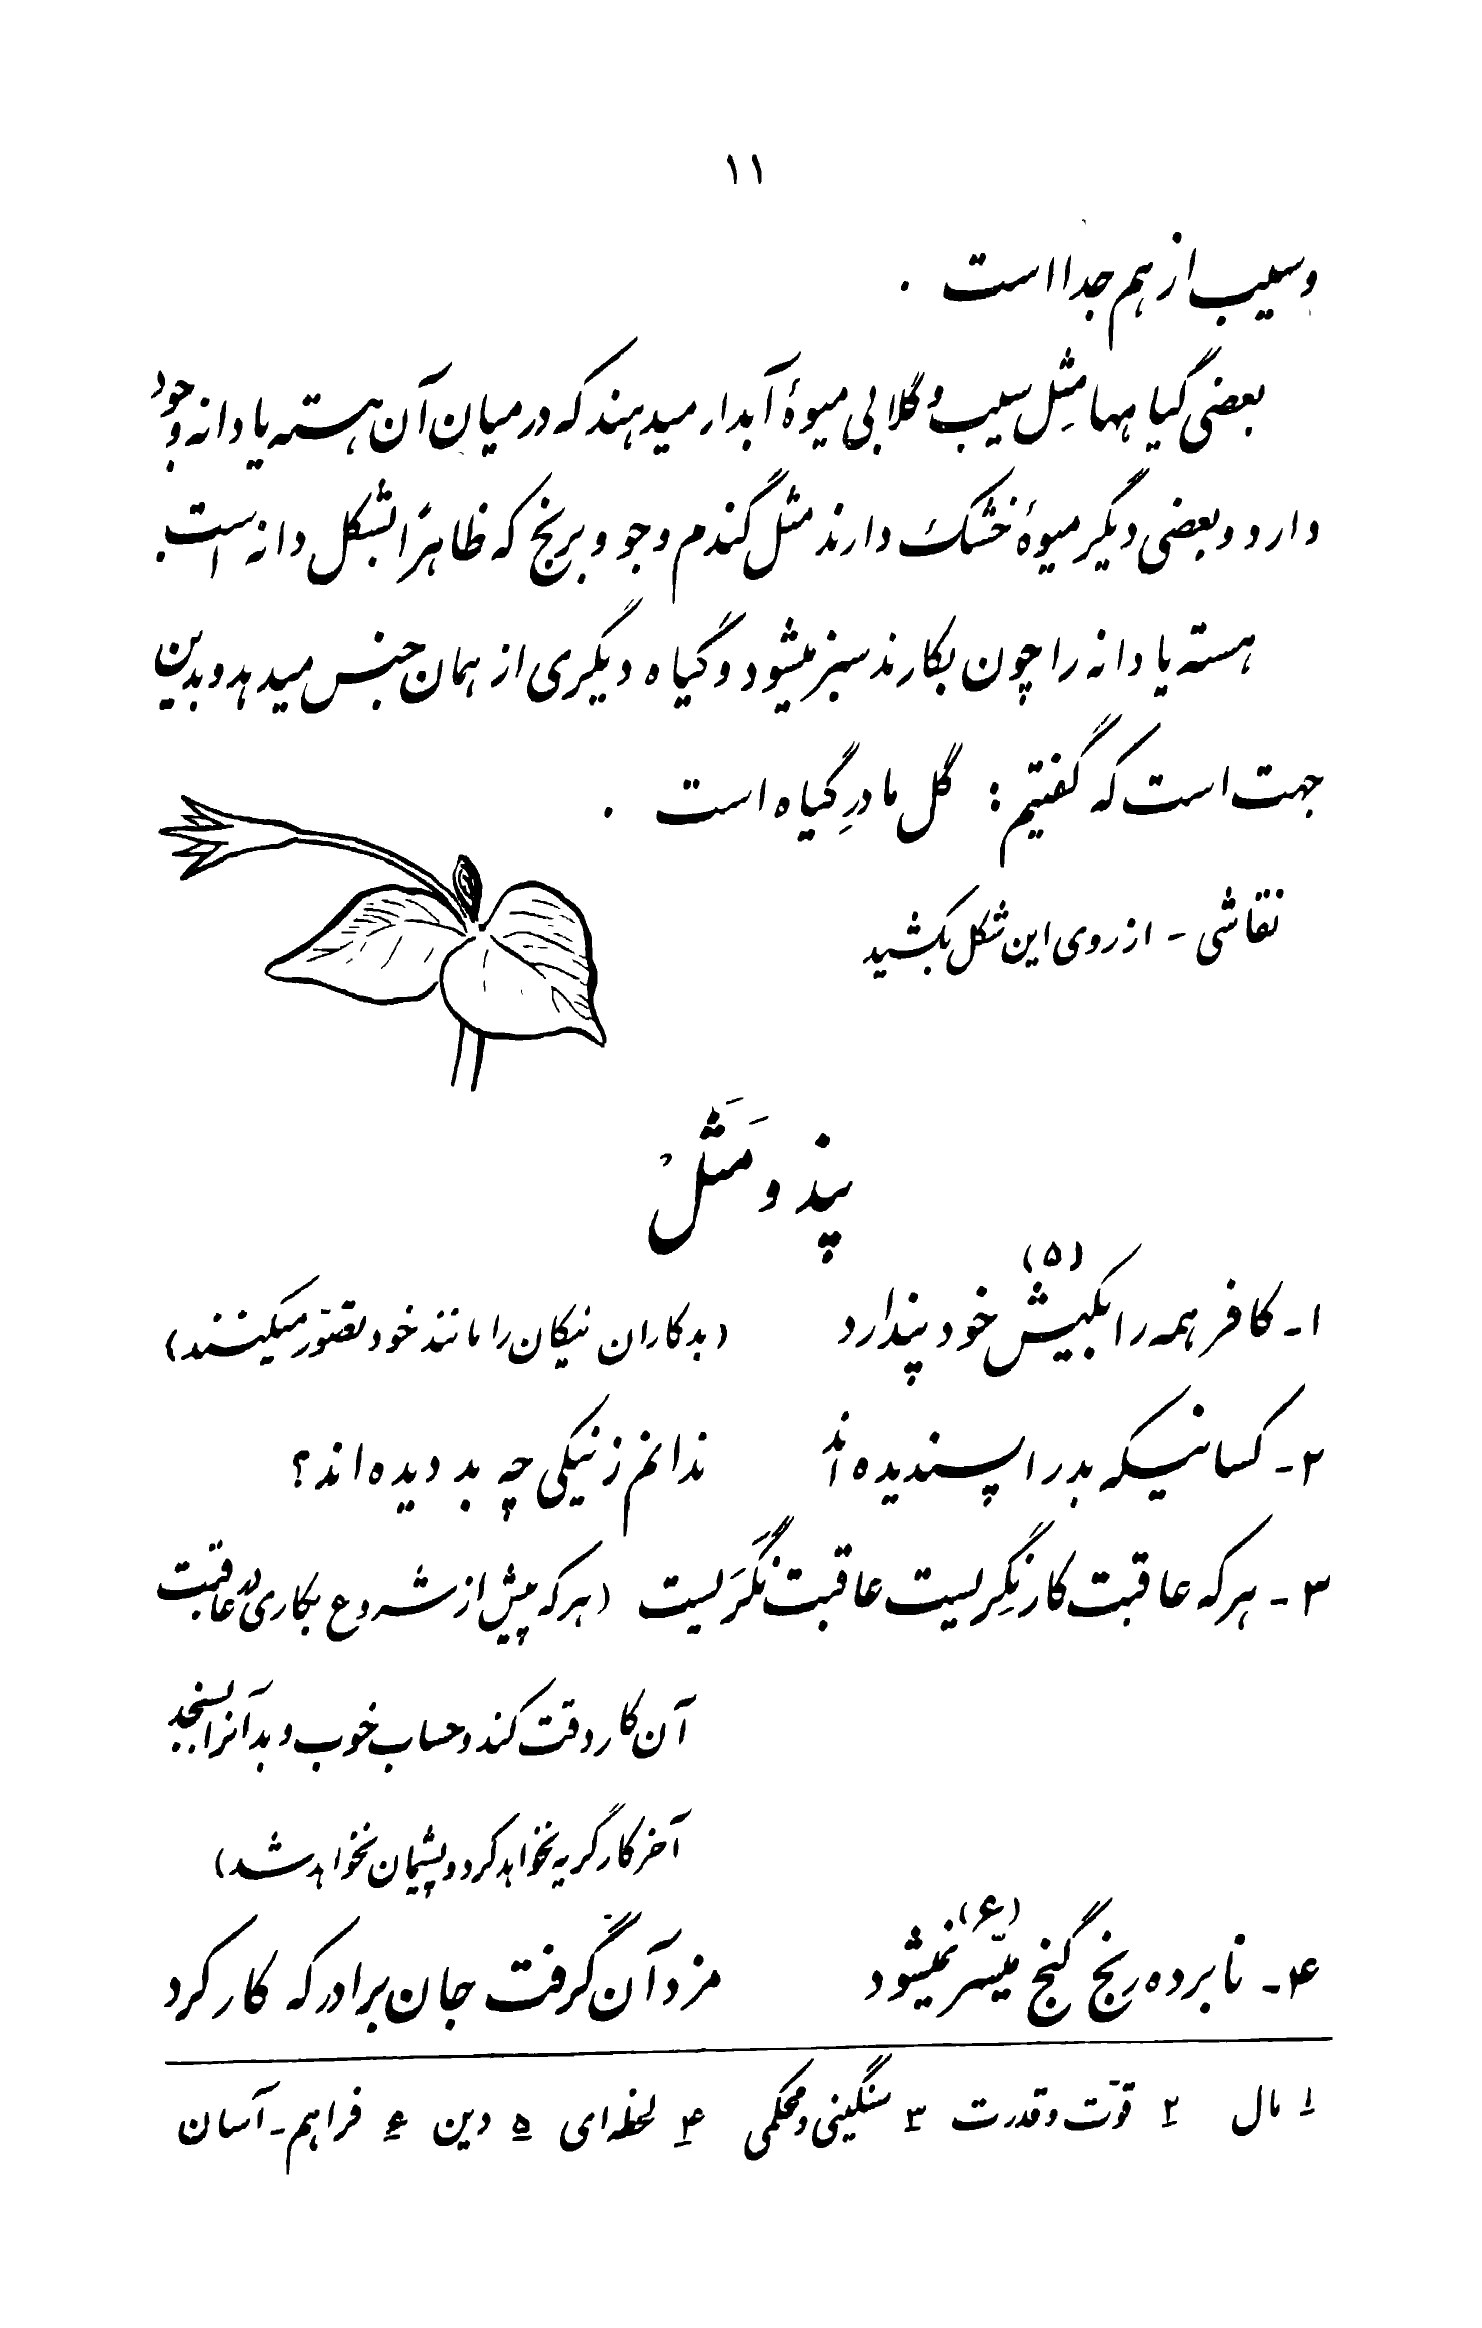 ۱۱
و سیب از هم جدا است .
بعضی گیاهها مثِل سیب و گلابی میوهٔ آبدار میدهند که در میان آن هسته یا دانه وجود
دارد و بعضی دیگر میوهٔ خشک دارند مثل گندم و جو و برنج که ظاهراً بشکل دانه است.
هسته یا دانه را چون بکارند سبز میشود و گیاه دیگری از همان جنس میدهد و بدین
جهت است که گفتیم : گل مادرِ گیاه است .
نقاشی - از روی این شکل بکشید
پند و مَثَلْ
۱- کافر همه را بکیش (۵) خود پندارد (بدکاران نیکان را مانند خود تصوّر میکنند)
۲- کسانیکه بد را پسندیده اند ندانم ز نیکی چه بد دیده اند ؟
۳- هر که عاقبت کار نگِریست عاقبت نگَریست (هر که پیش از شروع بکاری در عاقبت
آن کار دقت کند و حساب خوب و بد آنرا بسنجد
آخر کار گریه نخواهد کرد و پشیمان نخواهد شد)
۴- نابرده رنج گنج میّسر (۶) نمیشود مزد آن گرفت جان برادر که کار کرد
۱ مال ۲ قوّت و قدرت ۳ سنگینی و محکمی ۴ لحظه ای ۵ دین ۶ فراهم - آسان